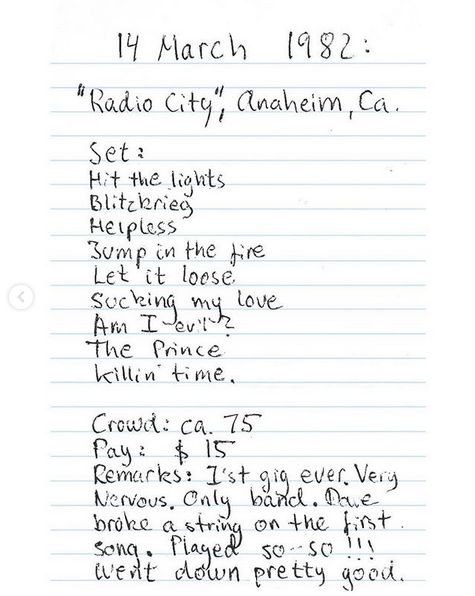 14 March 1982:
"Radio City", Anaheim, Ca.
Set:
Hit the lights
Blitzkrieg
Helpless
Jump in the fire
Let it loose
Sucking my love
Am I evil?
The Prince
Killin' time.
Crowd: ca. 75
Pay: $ 15
Remarks: I'st gig ever. Very
Nervous. Only band. Dave
broke a string on the first
song. Played so-so !!!
Went down pretty good.